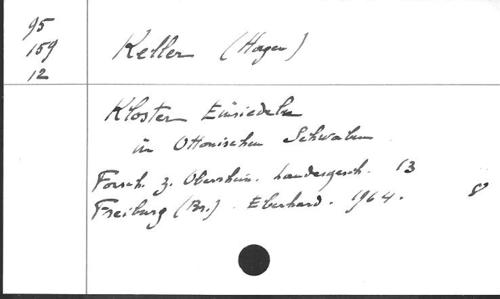 95
159
12
Keller (Hagen)
Kloster Einsiedeln
in Ottonischen Schwaben
Forsch. z. Oberrhein. Landesgesch. 13
Freiburg (Br.). Eberhard. 1964. 8°